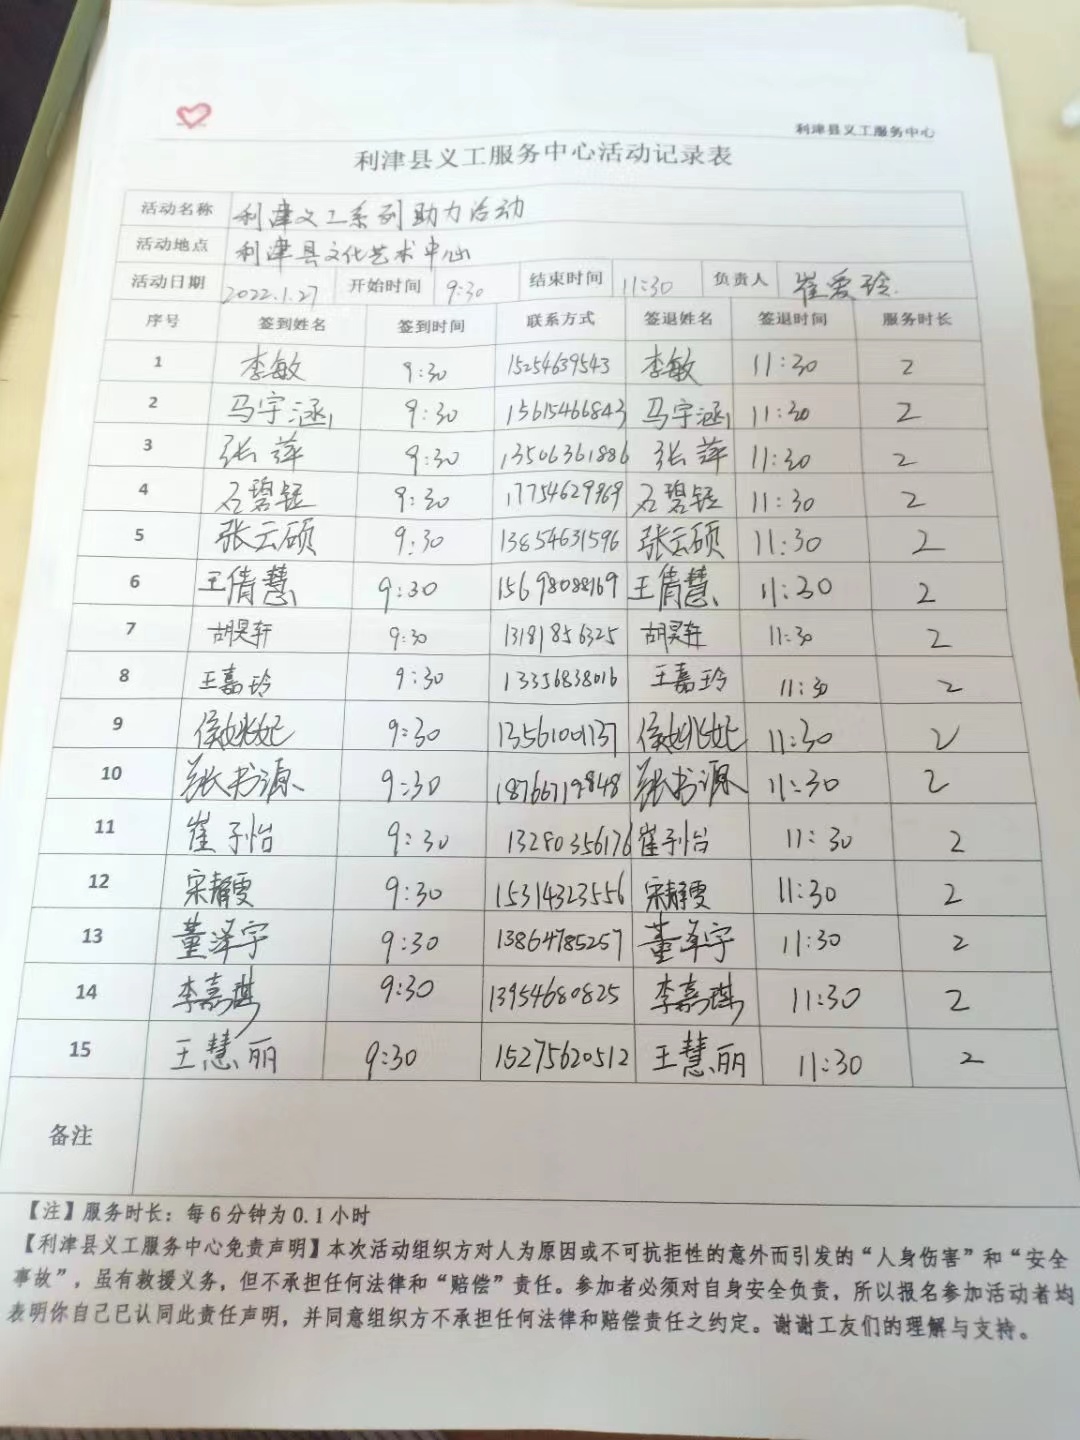 利津县义工服务中心
利津县义工服务中心活动记录表
活动名称 利津义工系列助力活动
活动地点 利津县文化艺术中心
活动日期 2022.1.27 开始时间 9:30 结束时间 11:30 负责人 崔爱玲
序号 签到姓名 签到时间 联系方式 签退姓名 签退时间 服务时长
1 李敏 9:30 15254639543 李敏 11:30 2
2 马宇涵 9:30 15615466843 马宇涵 11:30 2
3 张萍 9:30 13506361886 张萍 11:30 2
4 石碧钰 9:30 17754629969 石碧钰 11:30 2
5 张云硕 9:30 13854631596 张云硕 11:30 2
6 王倩慧 9:30 15698088169 王倩慧 11:30 2
7 胡昊轩 9:30 13181856325 胡昊轩 11:30 2
8 王嘉玲 9:30 13356838016 王嘉玲 11:30 2
9 侯姚妃 9:30 13561001137 侯姚妃 11:30 2
10 张书源 9:30 18766719848 张书源 11:30 2
11 崔子怡 9:30 13280356176 崔子怡 11:30 2
12 宋静雯 9:30 15314323556 宋静雯 11:30 2
13 董泽宇 9:30 13864785257 董泽宇 11:30 2
14 李嘉琪 9:30 13954680825 李嘉琪 11:30 2
15 王慧丽 9:30 15275620512 王慧丽 11:30 2
备注
【注】服务时长：每6分钟为0.1小时
【利津县义工服务中心免责声明】本次活动组织方对人为原因或不可抗拒性的意外而引发的“人身伤害”和“安全
事故”，虽有救援义务，但不承担任何法律和“赔偿”责任。参加者必须对自身安全负责，所以报名参加活动者均
表明你自己已认同此责任声明，并同意组织方不承担任何法律和赔偿责任之约定。谢谢工友们的理解与支持。